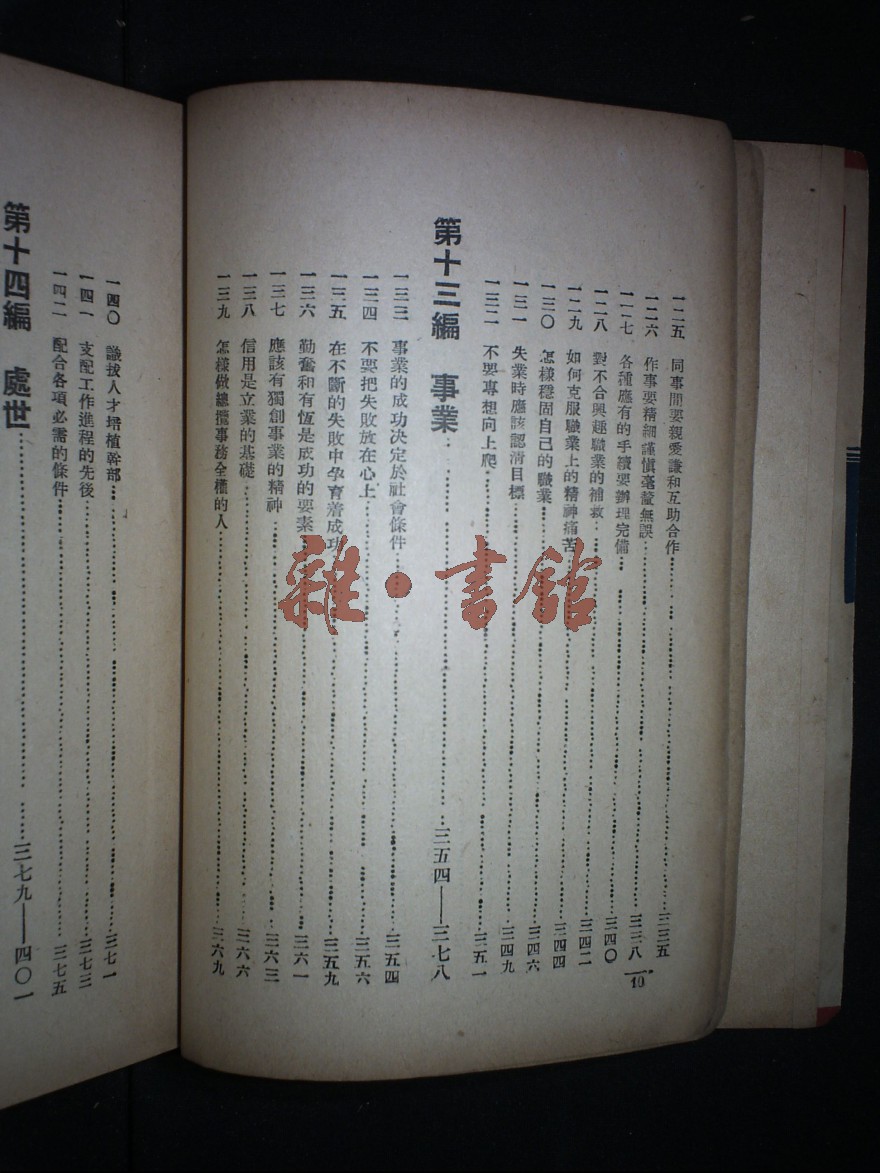 一二五　同事間要親愛謙和互助合作……三三五
一二六　作事要精細謹愼毫釐無誤……三三八
一二七　各種應有的手續要辦理完備……三四〇
一二八　對不合興趣職業的補救……三四二
一二九　如何克服職業上的精神痛苦……三四四
一三〇　怎樣穩固自己的職業……三四六
一三一　失業時應該認清目標……三四九
一三二　不要專想向上爬……三五一
第十三編　事業……三五四——三七八
一三三　事業的成功决定於社會條件……三五四
一三四　不要把失敗放在心上……三五六
一三五　在不斷的失敗中孕育着成功……三五九
一三六　勤奮和有恆是成功的要素……三六一
一三七　應該有獨創事業的精神……三六三
一三八　信用是立業的基礎……三六六
一三九　怎樣做總攬事務全權的人……三六九
10
一四〇　識拔人才培植幹部……三七一
一四一　支配工作進程的先後……三七三
一四二　配合各項必需的條件……三七五
第十四編　處世……三七九——四〇一
雜·書館